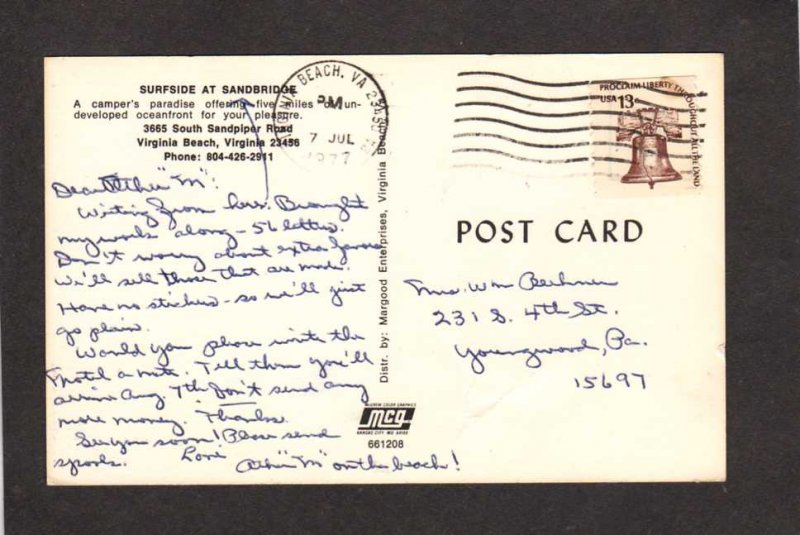 SURFSIDE AT SANDBRIDGE
A camper's paradise offering five miles of un-
developed oceanfront for your pleasure.
3665 South Sandpiper Road
Virginia Beach, Virginia 23456
Phone: 804-426-2911
VIRGINIA BEACH, VA
PM
7 JUL
1977
PROCLAIM LIBERTY THROUGHOUT ALL THE LAND
USA 13c
Dear Other "M":
Writing from here. Brought
my work along - 56 letters.
Don't worry about extra
We'll sell those that are made.
Have no stickers - so we'll just
go plain.
Would you please write the
Motel a note. Tell them you'll
arrive Aug. 7th. Don't send any
more money. Thanks.
See you soon! Please send
spools. Love
Other "M" on the beach!
Distr. by: Margood Enterprises, Virginia Beach
POST CARD
Mrs. Wm
231 S. 4th St.
Youngwood, Pa.
15697
McGREW COLOR GRAPHICS
mcg
KANSAS CITY, MO. 64108
661208